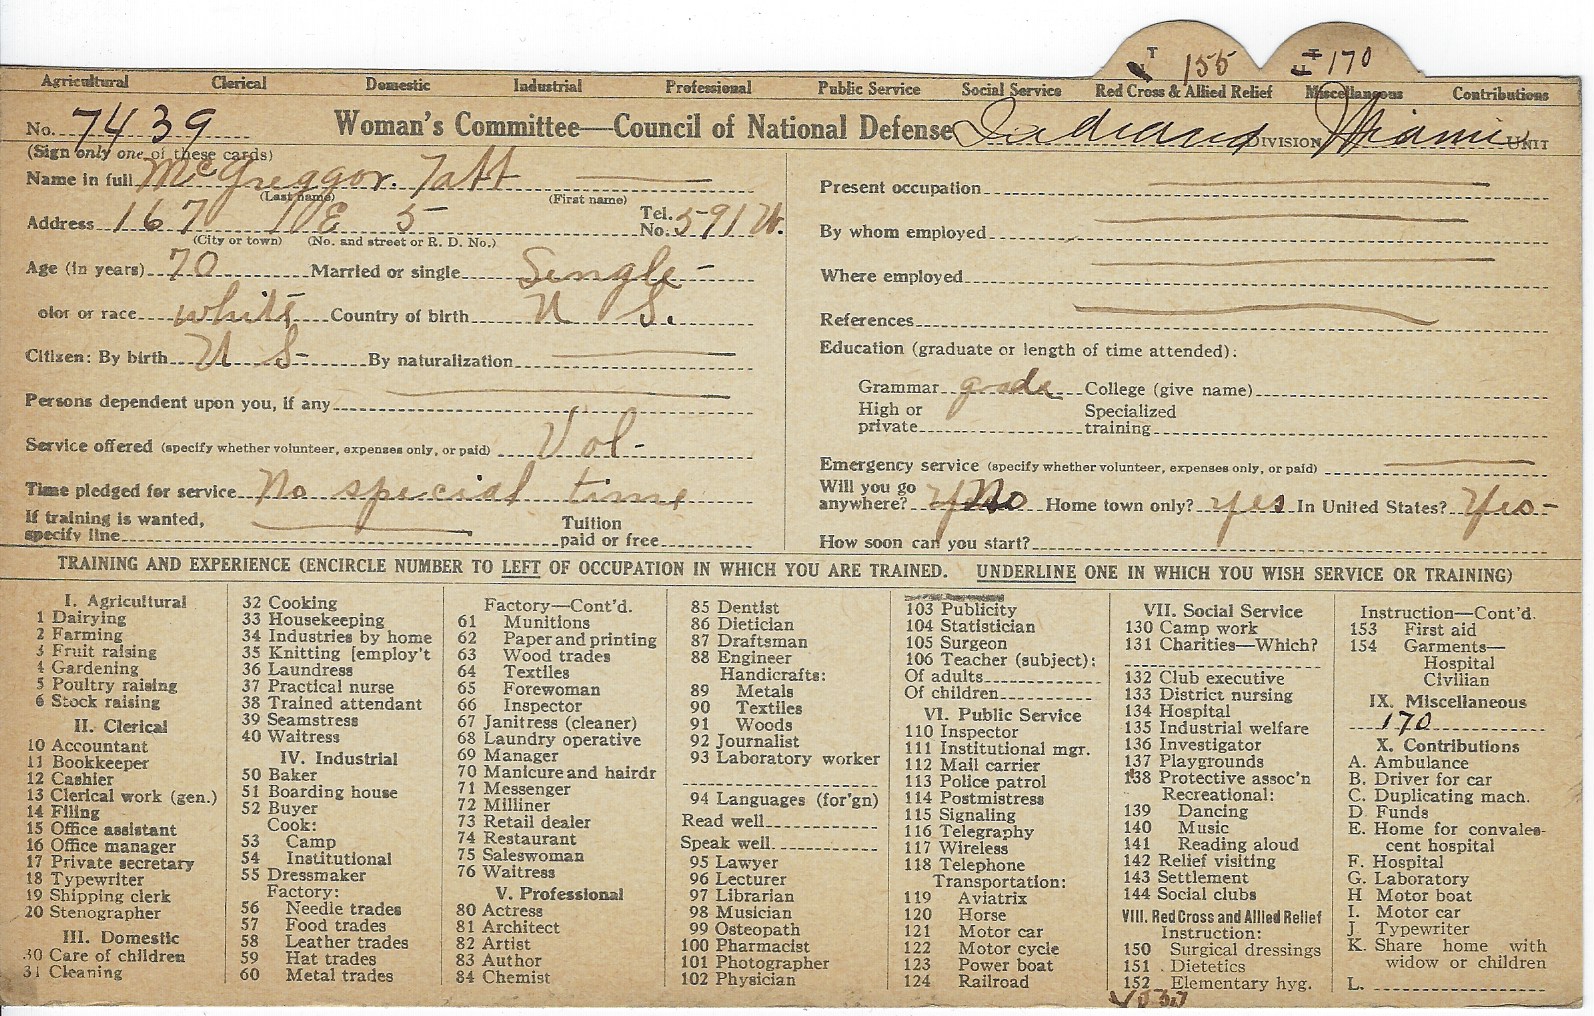 T 155 T 170
Agricultural Clerical Domestic Industrial Professional Public Service Social Service Red Cross & Allied Relief Miscellaneous Contributions
No. 7439 Woman's Committee—Council of National Defense Indiana DIVISION Miami UNIT
(Sign only one of these cards)
Name in full McGreggor. Tatt
(Last name) (First name)
Address 167 E 5 Tel. No. 591 W.
(City or town) (No. and street or R. D. No.)
Age (in years) 70 Married or single Single-
olor or race white Country of birth U S.
Citizen: By birth U S- By naturalization
Persons dependent upon you, if any
Service offered (specify whether volunteer, expenses only, or paid) Vol-
Time pledged for service No special time
If training is wanted, specify line Tuition paid or free
Present occupation
By whom employed
Where employed
References
Education (graduate or length of time attended):
Grammar grade College (give name)
High or private Specialized training
Emergency service (specify whether volunteer, expenses only, or paid)
Will you go anywhere? No Home town only? yes In United States? Yes-
How soon can you start?
TRAINING AND EXPERIENCE (ENCIRCLE NUMBER TO LEFT OF OCCUPATION IN WHICH YOU ARE TRAINED. UNDERLINE ONE IN WHICH YOU WISH SERVICE OR TRAINING)
I. Agricultural
1 Dairying
2 Farming
3 Fruit raising
4 Gardening
5 Poultry raising
6 Stock raising
II. Clerical
10 Accountant
11 Bookkeeper
12 Cashier
13 Clerical work (gen.)
14 Filing
15 Office assistant
16 Office manager
17 Private secretary
18 Typewriter
19 Shipping clerk
20 Stenographer
III. Domestic
30 Care of children
31 Cleaning
32 Cooking
33 Housekeeping
34 Industries by home
35 Knitting [employ't
36 Laundress
37 Practical nurse
38 Trained attendant
39 Seamstress
40 Waitress
IV. Industrial
50 Baker
51 Boarding house
52 Buyer
Cook:
53 Camp
54 Institutional
55 Dressmaker
Factory:
56 Needle trades
57 Food trades
58 Leather trades
59 Hat trades
60 Metal trades
Factory—Cont'd.
61 Munitions
62 Paper and printing
63 Wood trades
64 Textiles
65 Forewoman
66 Inspector
67 Janitress (cleaner)
68 Laundry operative
69 Manager
70 Manicure and hairdr
71 Messenger
72 Milliner
73 Retail dealer
74 Restaurant
75 Saleswoman
76 Waitress
V. Professional
80 Actress
81 Architect
82 Artist
83 Author
84 Chemist
85 Dentist
86 Dietician
87 Draftsman
88 Engineer
Handicrafts:
89 Metals
90 Textiles
91 Woods
92 Journalist
93 Laboratory worker
94 Languages (for'gn)
Read well
Speak well
95 Lawyer
96 Lecturer
97 Librarian
98 Musician
99 Osteopath
100 Pharmacist
101 Photographer
102 Physician
103 Publicity
104 Statistician
105 Surgeon
106 Teacher (subject):
Of adults
Of children
VI. Public Service
110 Inspector
111 Institutional mgr.
112 Mail carrier
113 Police patrol
114 Postmistress
115 Signaling
116 Telegraphy
117 Wireless
118 Telephone
Transportation:
119 Aviatrix
120 Horse
121 Motor car
122 Motor cycle
123 Power boat
124 Railroad
VII. Social Service
130 Camp work
131 Charities—Which?
132 Club executive
133 District nursing
134 Hospital
135 Industrial welfare
136 Investigator
137 Playgrounds
138 Protective assoc'n
Recreational:
139 Dancing
140 Music
141 Reading aloud
142 Relief visiting
143 Settlement
144 Social clubs
VIII. Red Cross and Allied Relief
Instruction:
150 Surgical dressings
151 Dietetics
152 Elementary hyg.
Instruction—Cont'd.
153 First aid
154 Garments—
Hospital
Civilian
IX. Miscellaneous
170
X. Contributions
A. Ambulance
B. Driver for car
C. Duplicating mach.
D. Funds
E. Home for convales-
cent hospital
F. Hospital
G. Laboratory
H Motor boat
I. Motor car
J. Typewriter
K. Share home with
widow or children
L.